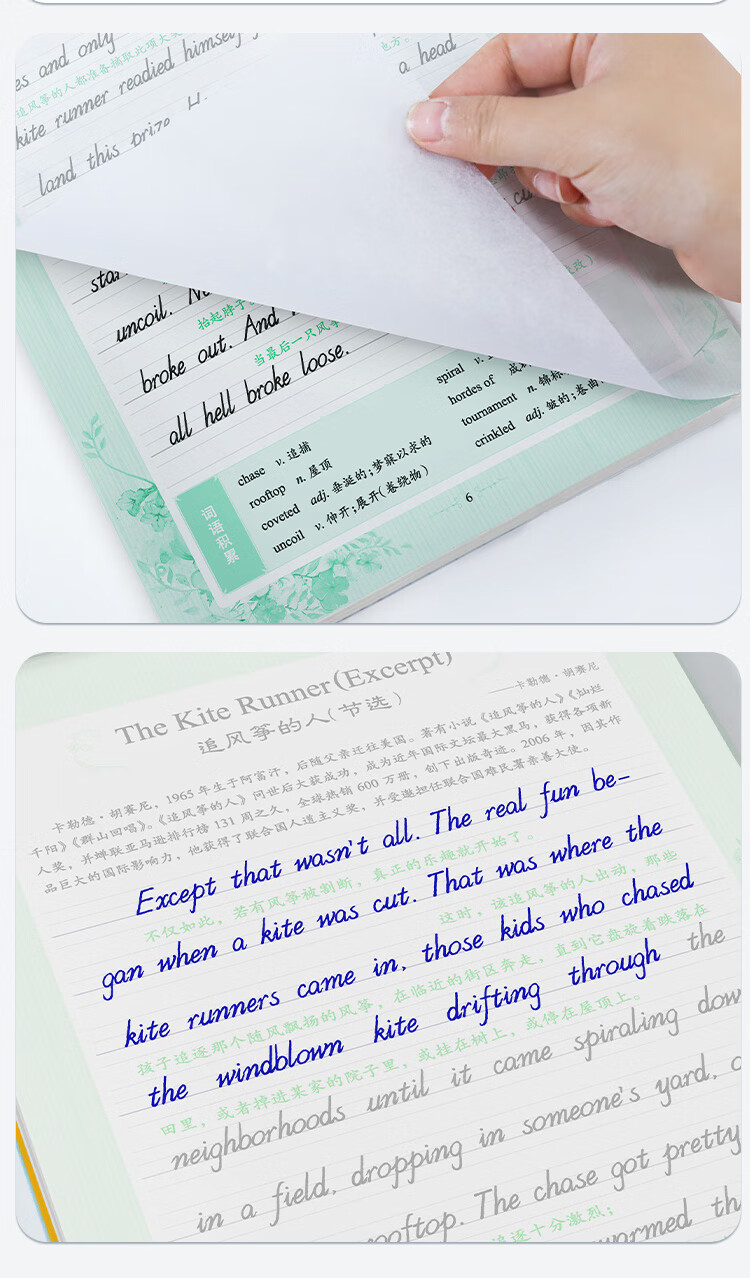 es and only
追风筝的人都准备摘取此项大
kite runner readied himself
land this prize H
a head
也方。
sta
uncoil. N
抬起脖子
broke out. And
当最后一只风筝
all hell broke loose.
改）
词语积累
chase v. 追捕
rooftop n. 屋顶
coveted adj. 垂涎的；梦寐以求的
uncoil v. 伸开；展开（卷绕物）
spiral v.
hordes of 成
tournament n. 锦标
crinkled adj. 皱的；卷曲
6
The Kite Runner (Excerpt)
追风筝的人（节选）
——卡勒德·胡赛尼
卡勒德·胡赛尼，1965 年生于阿富汗，后随父亲迁往美国。著有小说《追风筝的人》《灿烂
千阳》《群山回唱》。《追风筝的人》问世后大获成功，成为近年国际文坛最大黑马，获得各项新
人奖，并蝉联亚马逊排行榜 131 周之久，全球热销 600 万册，创下出版奇迹。2006 年，因其作
品巨大的国际影响力，他获得了联合国人道主义奖，并受邀担任联合国难民署亲善大使。
Except that wasn't all. The real fun be-
不仅如此，若有风筝被割断，真正的乐趣就开始了。
gan when a kite was cut. That was where the
这时，该追风筝的人出动，那些
kite runners came in, those kids who chased
孩子追逐那个随风飘扬的风筝，在临近的街区奔走，直到它盘旋着跌落在
the windblown kite drifting through the
田里，或者掉进某家的院子里，或挂在树上，或停在屋顶上。
neighborhoods until it came spiraling dow
in a field, dropping in someone's yard, o
ooftop. The chase got pretty
追逐十分激烈；
warmed th